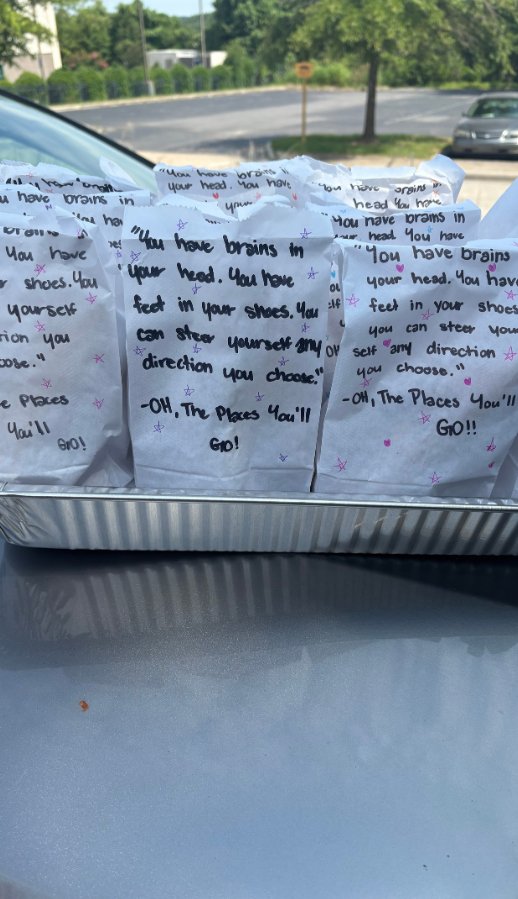 have brains
have brains in
"You have brains in
your head. You have
your
You have brains in
head You have
"You have brains in
your head. You have
You have
shoes. You
yourself
you
Places
You'll
GO!
"You have brains in
your head. You have
feet in your shoes. You
can steer yourself any
direction you choose."
-OH, The Places You'll
GO!
"You have brains
your head. You have
feet in your shoes
you can steer your
self any direction
you choose."
-OH, The Places You'll
GO!!